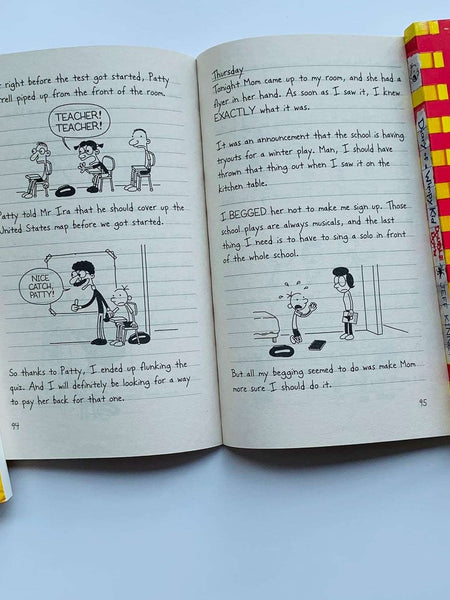 right before the test got started, Patty
rell piped up from the front of the room.
TEACHER!
TEACHER!
Patty told Mr Ira that he should cover up the
United States map before we got started.
NICE
CATCH,
PATTY!
So thanks to Patty, I ended up flunking the
quiz. And I will definitely be looking for a way
to pay her back for that one.
94
Thursday
Tonight Mom came up to my room, and she had a
flyer in her hand. As soon as I saw it, I knew
EXACTLY what it was.
It was an announcement that the school is having
tryouts for a winter play. Man, I should have
thrown that thing out when I saw it on the
kitchen table.
I BEGGED her not to make me sign up. Those
school plays are always musicals, and the last
thing I need is to have to sing a solo in front
of the whole school.
But all my begging seemed to do was make Mom
more sure I should do it.
95
Diary of a Wimpy Kid
JEFF KINN